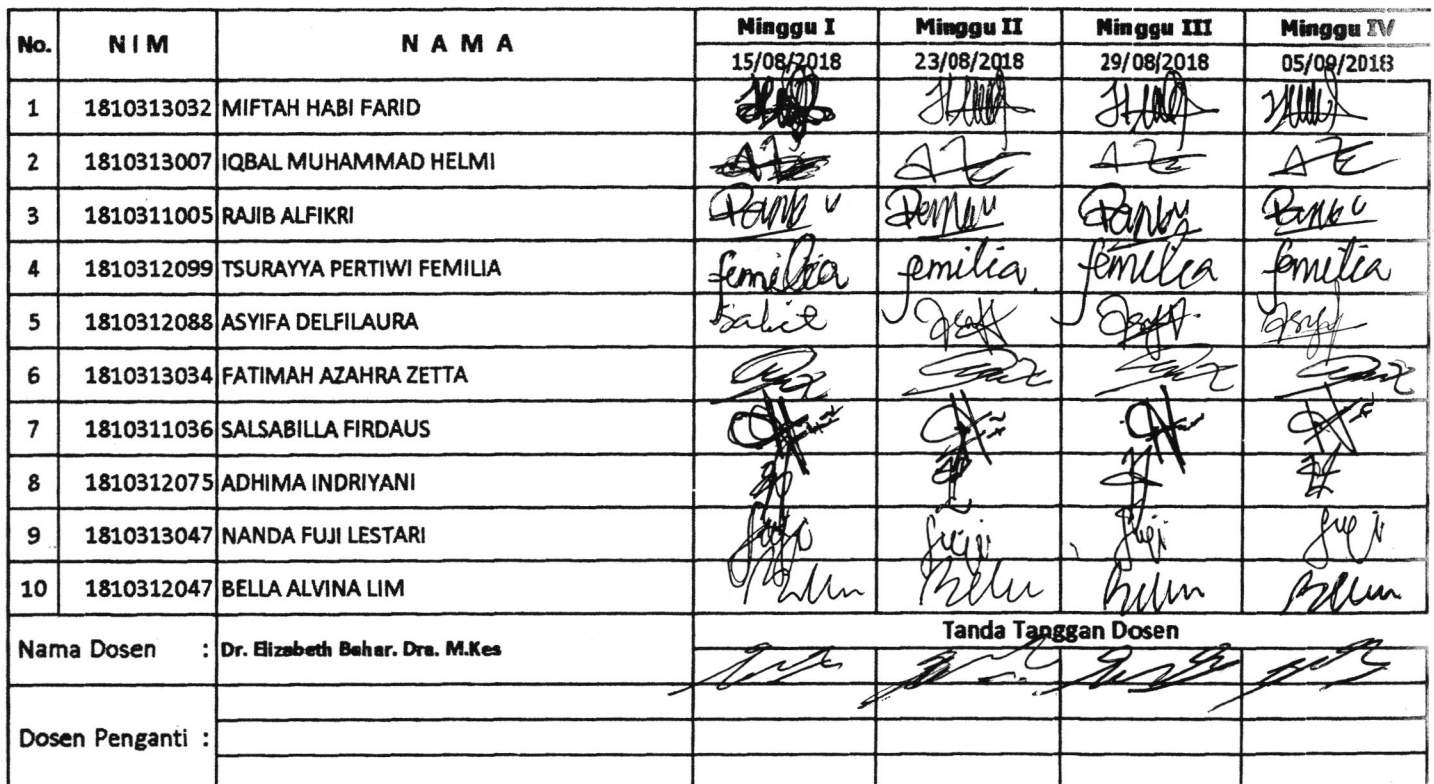 No. NIM NAMA Minggu I Minggu II Minggu III Minggu IV
15/08/2018 23/08/2018 29/08/2018 05/09/2018
1 1810313032 MIFTAH HABI FARID
2 1810313007 IQBAL MUHAMMAD HELMI
3 1810311005 RAJIB ALFIKRI
4 1810312099 TSURAYYA PERTIWI FEMILIA femilia femilia femilia femilia
5 1810312088 ASYIFA DELFILAURA
6 1810313034 FATIMAH AZAHRA ZETTA
7 1810311036 SALSABILLA FIRDAUS
8 1810312075 ADHIMA INDRIYANI
9 1810313047 NANDA FUJI LESTARI
10 1810312047 BELLA ALVINA LIM
Tanda Tanggan Dosen
Nama Dosen : Dr. Elizabeth Bahar. Dra. M.Kes
Dosen Penganti :